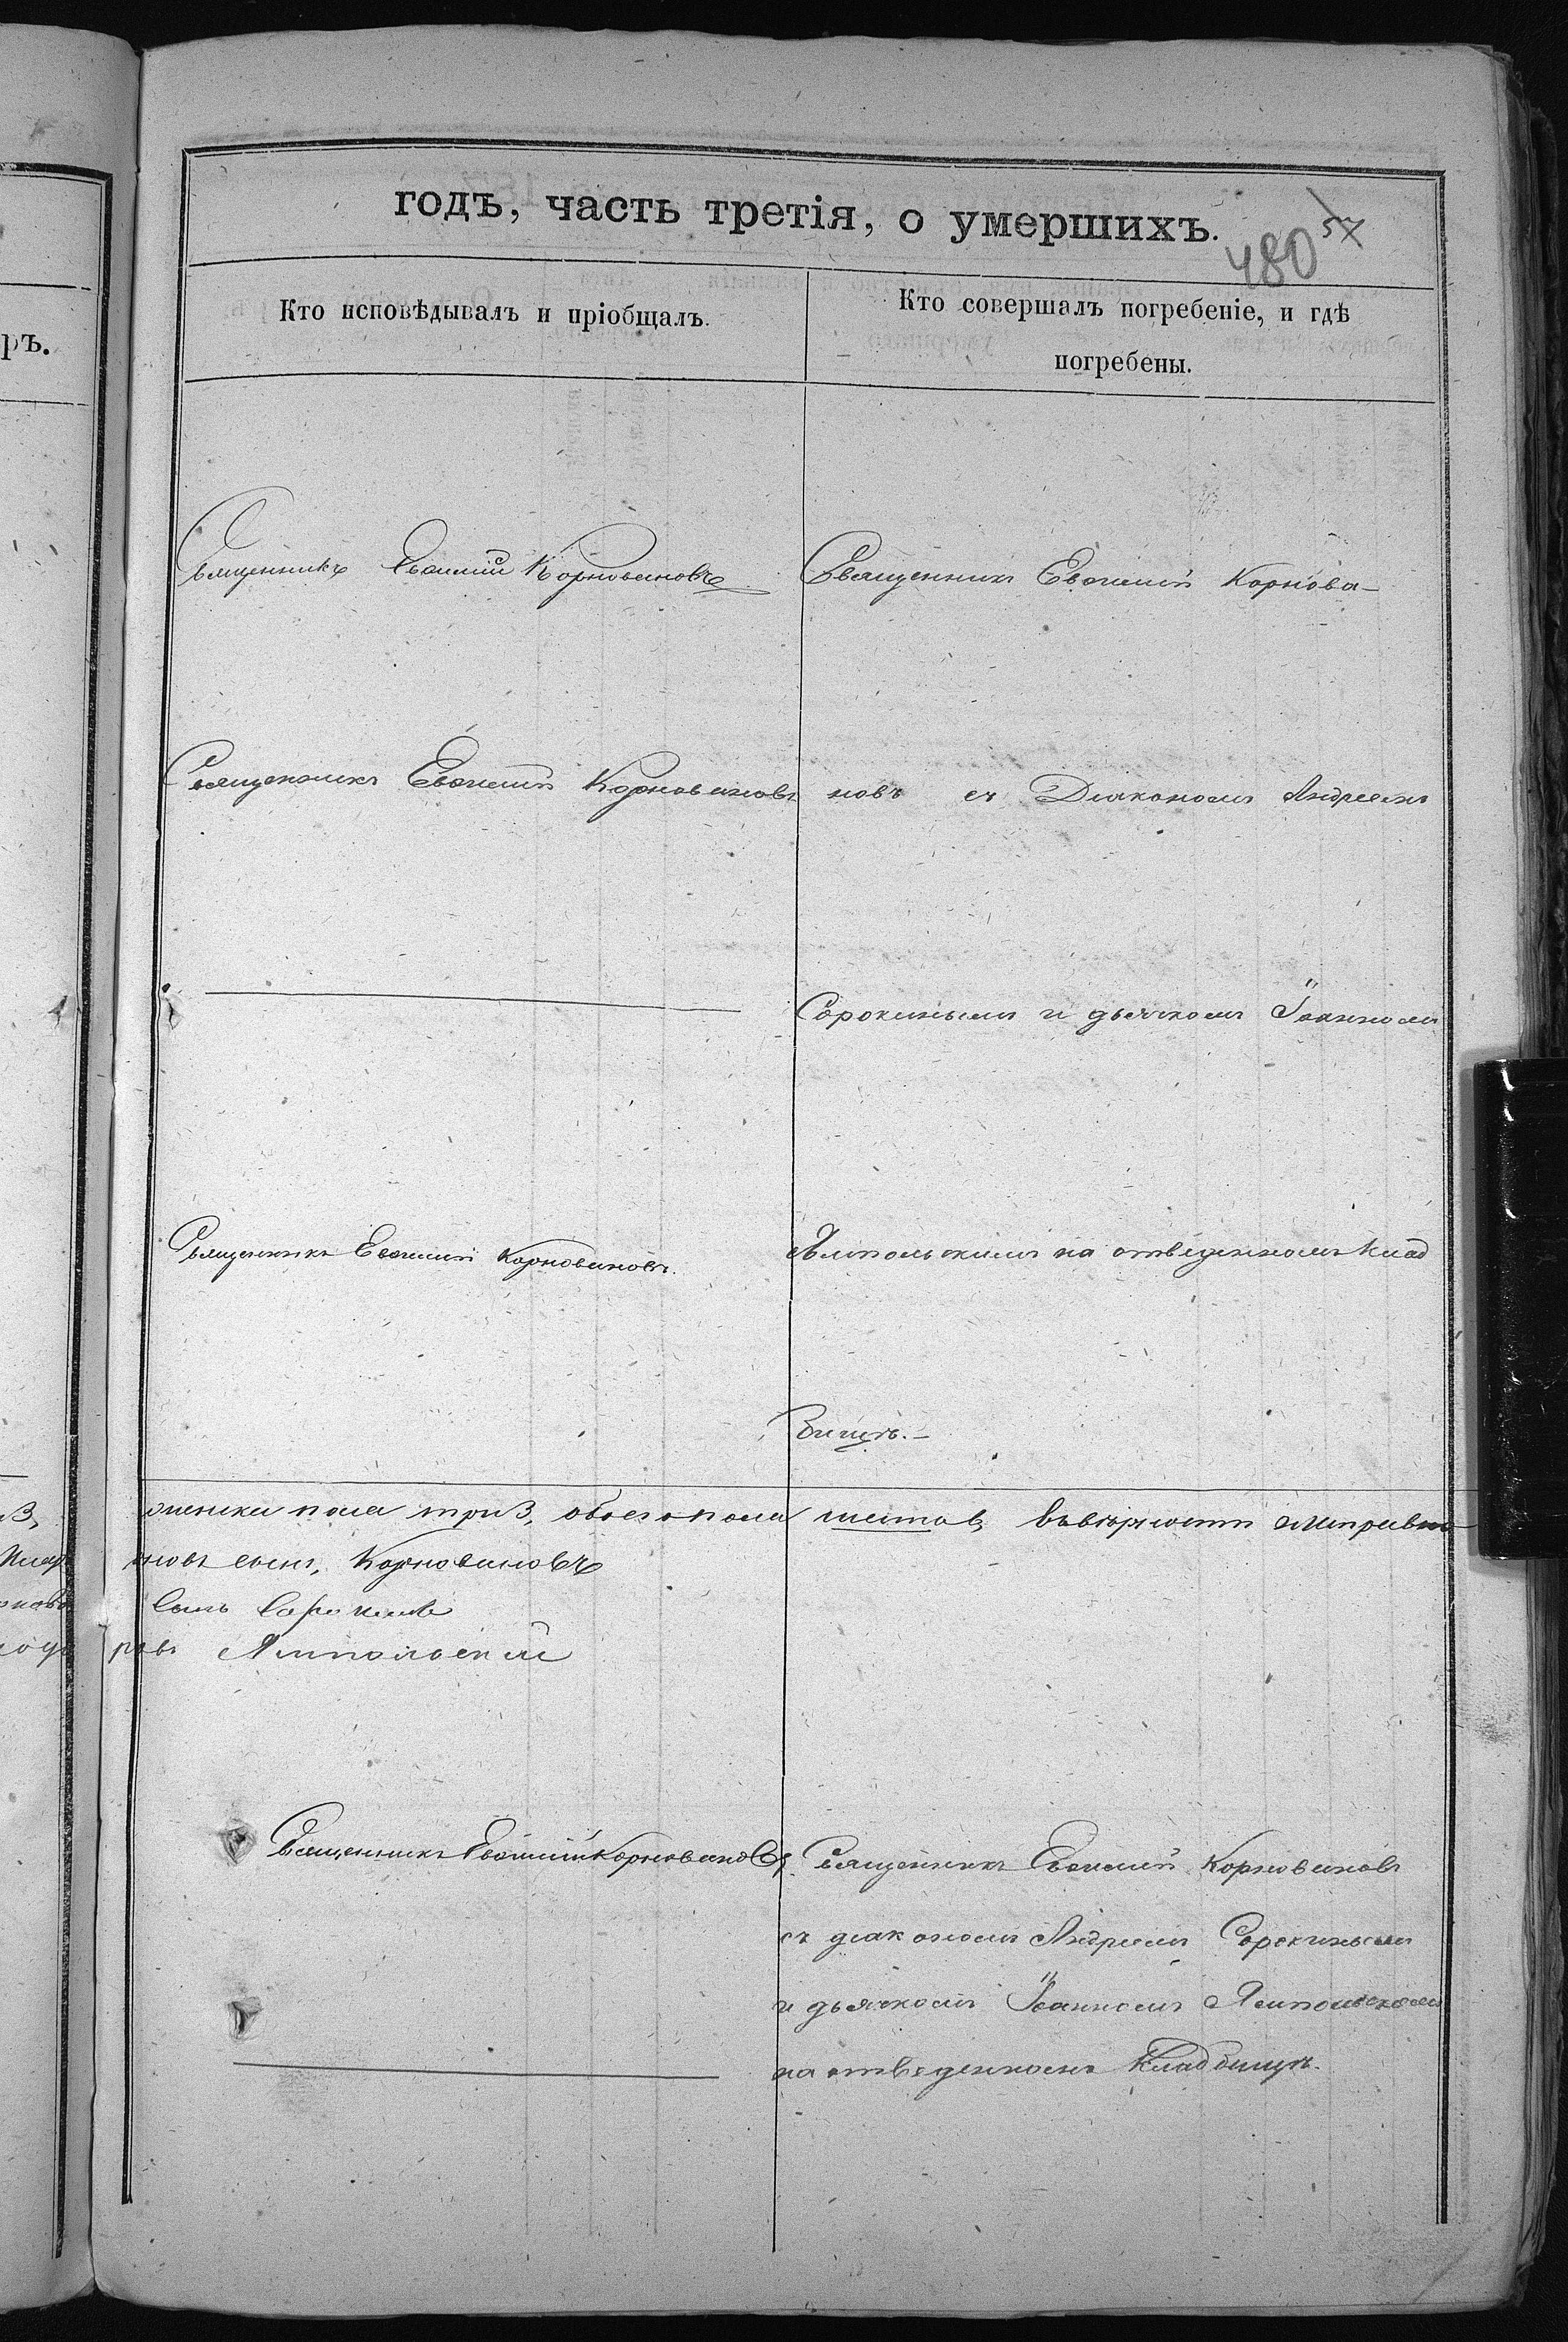 годъ, часть третія, о умершихъ.
480 57
ръ.
Кто исповѣдывалъ и пріобщалъ.
Кто совершалъ погребеніе, и гдѣ
погребены.
Священникъ Евѳимій Корноваковъ
Священникъ Евѳимій Корнова-
Священникъ Евѳимій Корноваковъ
новъ съ Діакономъ Андреемъ
Сорокинымъ и дьячкомъ Іоанномъ
Священникъ Евѳимій Корновановъ.
Ямпольскимъ на отведенномъ клад
бищѣ.-
женска пола три 3, обоего пола шесть 6,
новъ сынъ, Корновановъ
сынъ Сорокинъ
ровъ Ямпольскій
Священникъ Евѳимій Корновановъ.
Священникъ Евѳимій Корновановъ
съ діакономъ Андреемъ Сорокинымъ
и дьячкомъ Іоанномъ Ямпольскимъ
на отведенномъ кладбищѣ.